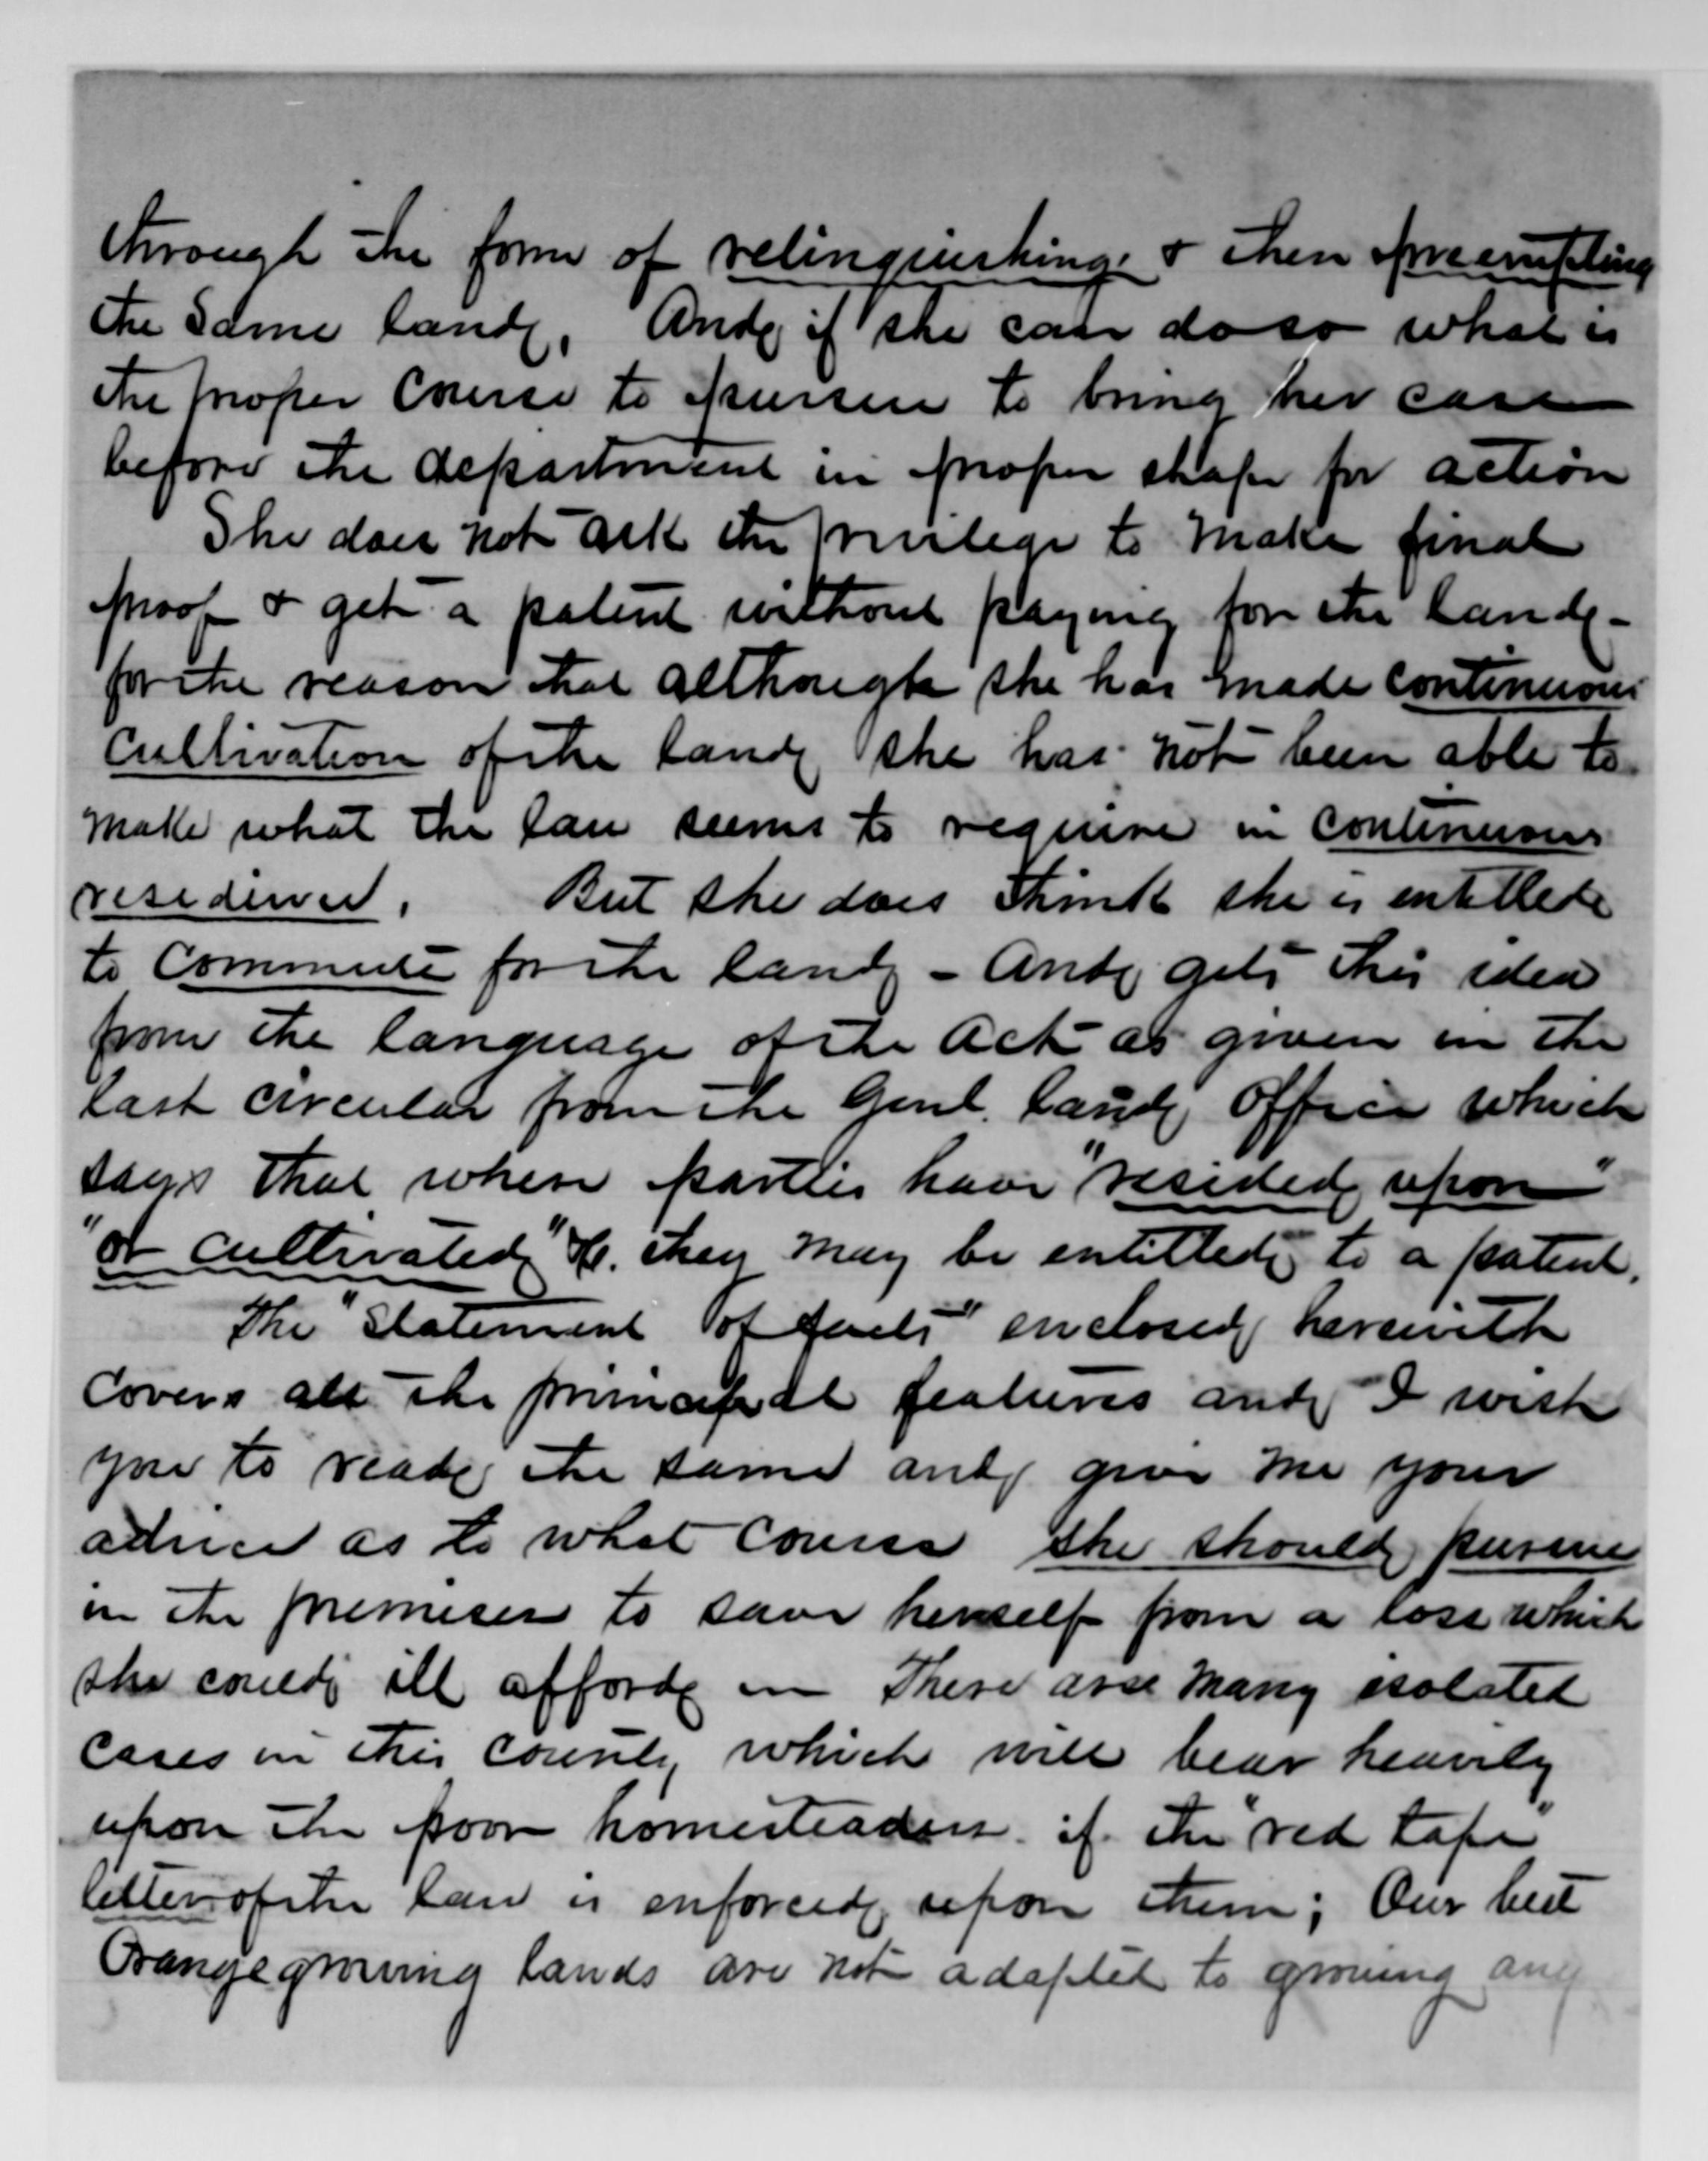 through the form of relinquishing & then preempting
the same land, And if she can do so what is
the proper course to pursue to bring her case
before the department in proper shape for action
She does not ask the privilege to make final
proof & get a patent without paying for the land -
for the reason that although she has made continuous
cultivation of the land she has not been able to
make what the law seems to require in continuous
residence. But she does think she is entitled
to Commute for the land - And gets this idea
from the language of the Act as given in the
last circular from the Genl. Land Office which
says that where parties have "resided upon"
"or cultivated" &c. they may be entitled to a patent.
The "Statement of facts" enclosed herewith
covers all the principal features and I wish
you to read the same and give me your
advice as to what course she should pursue
in the premises to save herself from a loss which
she could ill afford - There are many isolated
cases in this county which will bear heavily
upon the poor homesteaders if the "red tape"
letter of the law is enforced upon them; Our best
Orange growing lands are not adapted to growing any